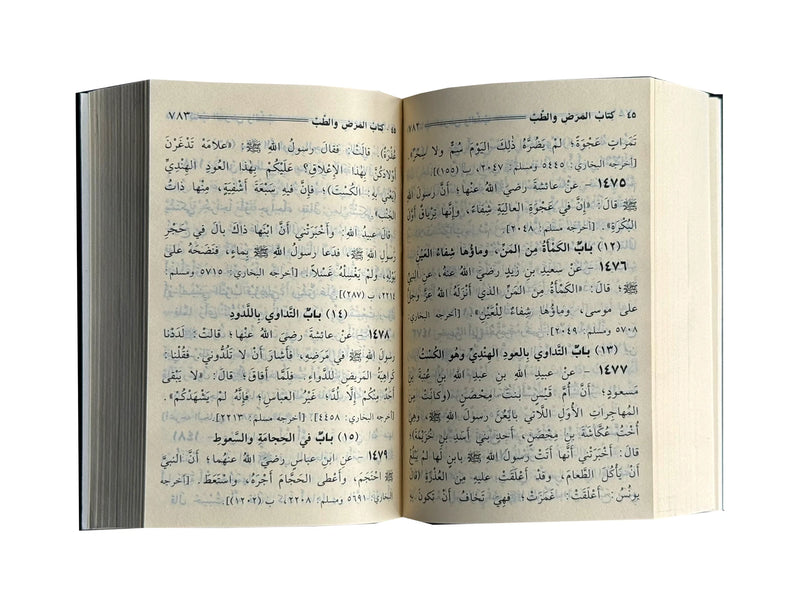 ٤٥ كتاب المرض والطب ٧٨٢
تَمَرَاتٍ عَجْوَةً؛ لَمْ يَضُرَّهُ ذَلِكَ اليَوْمَ سُمٌّ ولا سِحْرٌ».
[أخرجه البخاري: ٥٤٤٥ ومسلم: ٢٠٤٧، ب (١٥٥)].
١٤٧٥ - عَنْ عائشةَ رضيَ اللهُ عنها؛ أنَّ رسولَ اللهِ
ﷺ قالَ: «إنَّ في عَجْوَةِ العاليةِ شِفاءً، وإنَّها تِرْيَاقٌ أَوَّلَ
البُكْرَةِ». [أخرجه مسلم: ٢٠٤٨].
(١٢) بابٌ الكَمْأَةُ مِنَ المَنِّ، وماؤُها شِفاءُ العَيْنِ
١٤٧٦ - عَنْ سعيدِ بنِ زيدٍ رضيَ اللهُ عنهُ، عنِ النبيِّ
ﷺ؛ قالَ: «الكَمْأَةُ مِنَ المَنِّ الذي أَنْزَلَهُ اللهُ عزَّ وجلَّ
على موسى، وماؤُها شِفاءٌ لِلْعَيْنِ». [أخرجه البخاري:
٥٧٠٨ ومسلم: ٢٠٤٩].
(١٣) بابُ التَّداوي بالعودِ الهِنْدِيِّ وهُوَ الكُسْتُ
١٤٧٧ - عَنْ عبيدِ اللهِ بنِ عبدِ اللهِ بنِ عُتبةَ بنِ
مَسعودٍ؛ أنَّ أُمَّ قَيْسٍ بِنْتَ مِحْصَنٍ (وكانَتْ مِنَ
المُهاجِراتِ الأُوَلِ اللَّاتي بايَعْنَ رسولَ اللهِ ﷺ، وهيَ
أُخْتُ عُكَّاشَةَ بنِ مِحْصَنٍ، أحدِ بَني أَسَدِ بنِ خُزَيْمَةَ)؛
قالَ: أَخْبَرَتْني أنَّها أَتَتْ رسولَ اللهِ ﷺ بابنٍ لها لَمْ يَبْلُغْ
أَنْ يأْكُلَ الطَّعامَ، وقدْ أَعْلَقَتْ عليهِ مِنَ العُذْرَةِ (قالَ
يونُسُ: أَعْلَقَتْ: غَمَزَتْ؛ فهِيَ تَخَافُ أَنْ تَكونَ بهِ
٤٥ كتاب المرض والطب ٧٨٣
عُذْرَةٌ) قالَتْ: فقالَ رسولُ اللهِ ﷺ: «عَلامَهْ تَدْغَرْنَ
أَوْلادَكُنَّ بهذا الإِعْلاقِ؟ عَلَيْكُمْ بهَذا العُودِ الهِنْدِيِّ
(يَعْني بِهِ: الكُسْتَ)؛ فإنَّ فيهِ سَبْعَةَ أَشْفِيَةٍ، مِنْها ذَاتُ
الجَنْبِ».
قالَ عبيدُ اللهِ: وأَخْبَرَتْني أَنَّ ابْنَها ذاكَ بالَ في حَجْرِ
رسولِ اللهِ ﷺ، فدَعا رسولُ اللهِ ﷺ بِماءٍ، فنَضَحَهُ على
بَوْلِهِ، ولَمْ يَغْسِلْهُ غَسْلاً. [أخرجه البخاري: ٥٧١٥ ومسلم:
٢٢١٤، ب (٢٨٧)].
(١٤) بابُ التَّداوي باللَّدودِ
١٤٧٨ - عَنْ عائشةَ رضيَ اللهُ عنْها؛ قالتْ: لَدَدْنا
رسولَ اللهِ ﷺ في مَرَضِهِ، فأَشارَ أَنْ لا تَلُدُّوني. فقُلْنا:
كَراهِيَةُ المَريضِ للدَّواءِ. فلَمَّا أَفاقَ؛ قالَ: «لا يَبْقى
أَحَدٌ مِنْكُمْ إلَّا لُدَّ؛ غَيْرُ العباسِ؛ فإنَّهُ لَمْ يَشْهَدْكُمْ».
[أخرجه البخاري: ٤٤٥٨]. [أخرجه مسلم: ٢٢١٣].
(١٥) بابٌ في الحِجامَةِ والسَّعوطِ
١٤٧٩ - عَنِ ابنِ عباسٍ رضيَ اللهُ عنْهُما؛ أَنَّ النبيَّ
ﷺ احْتَجَمَ، وأَعْطى الحَجَّامَ أَجْرَهُ، واسْتَعَطَ. [أخرجه
البخاري: ٥٦٩١ ومسلم: ٢٢٠٨م، ب (١٢٠٢)].